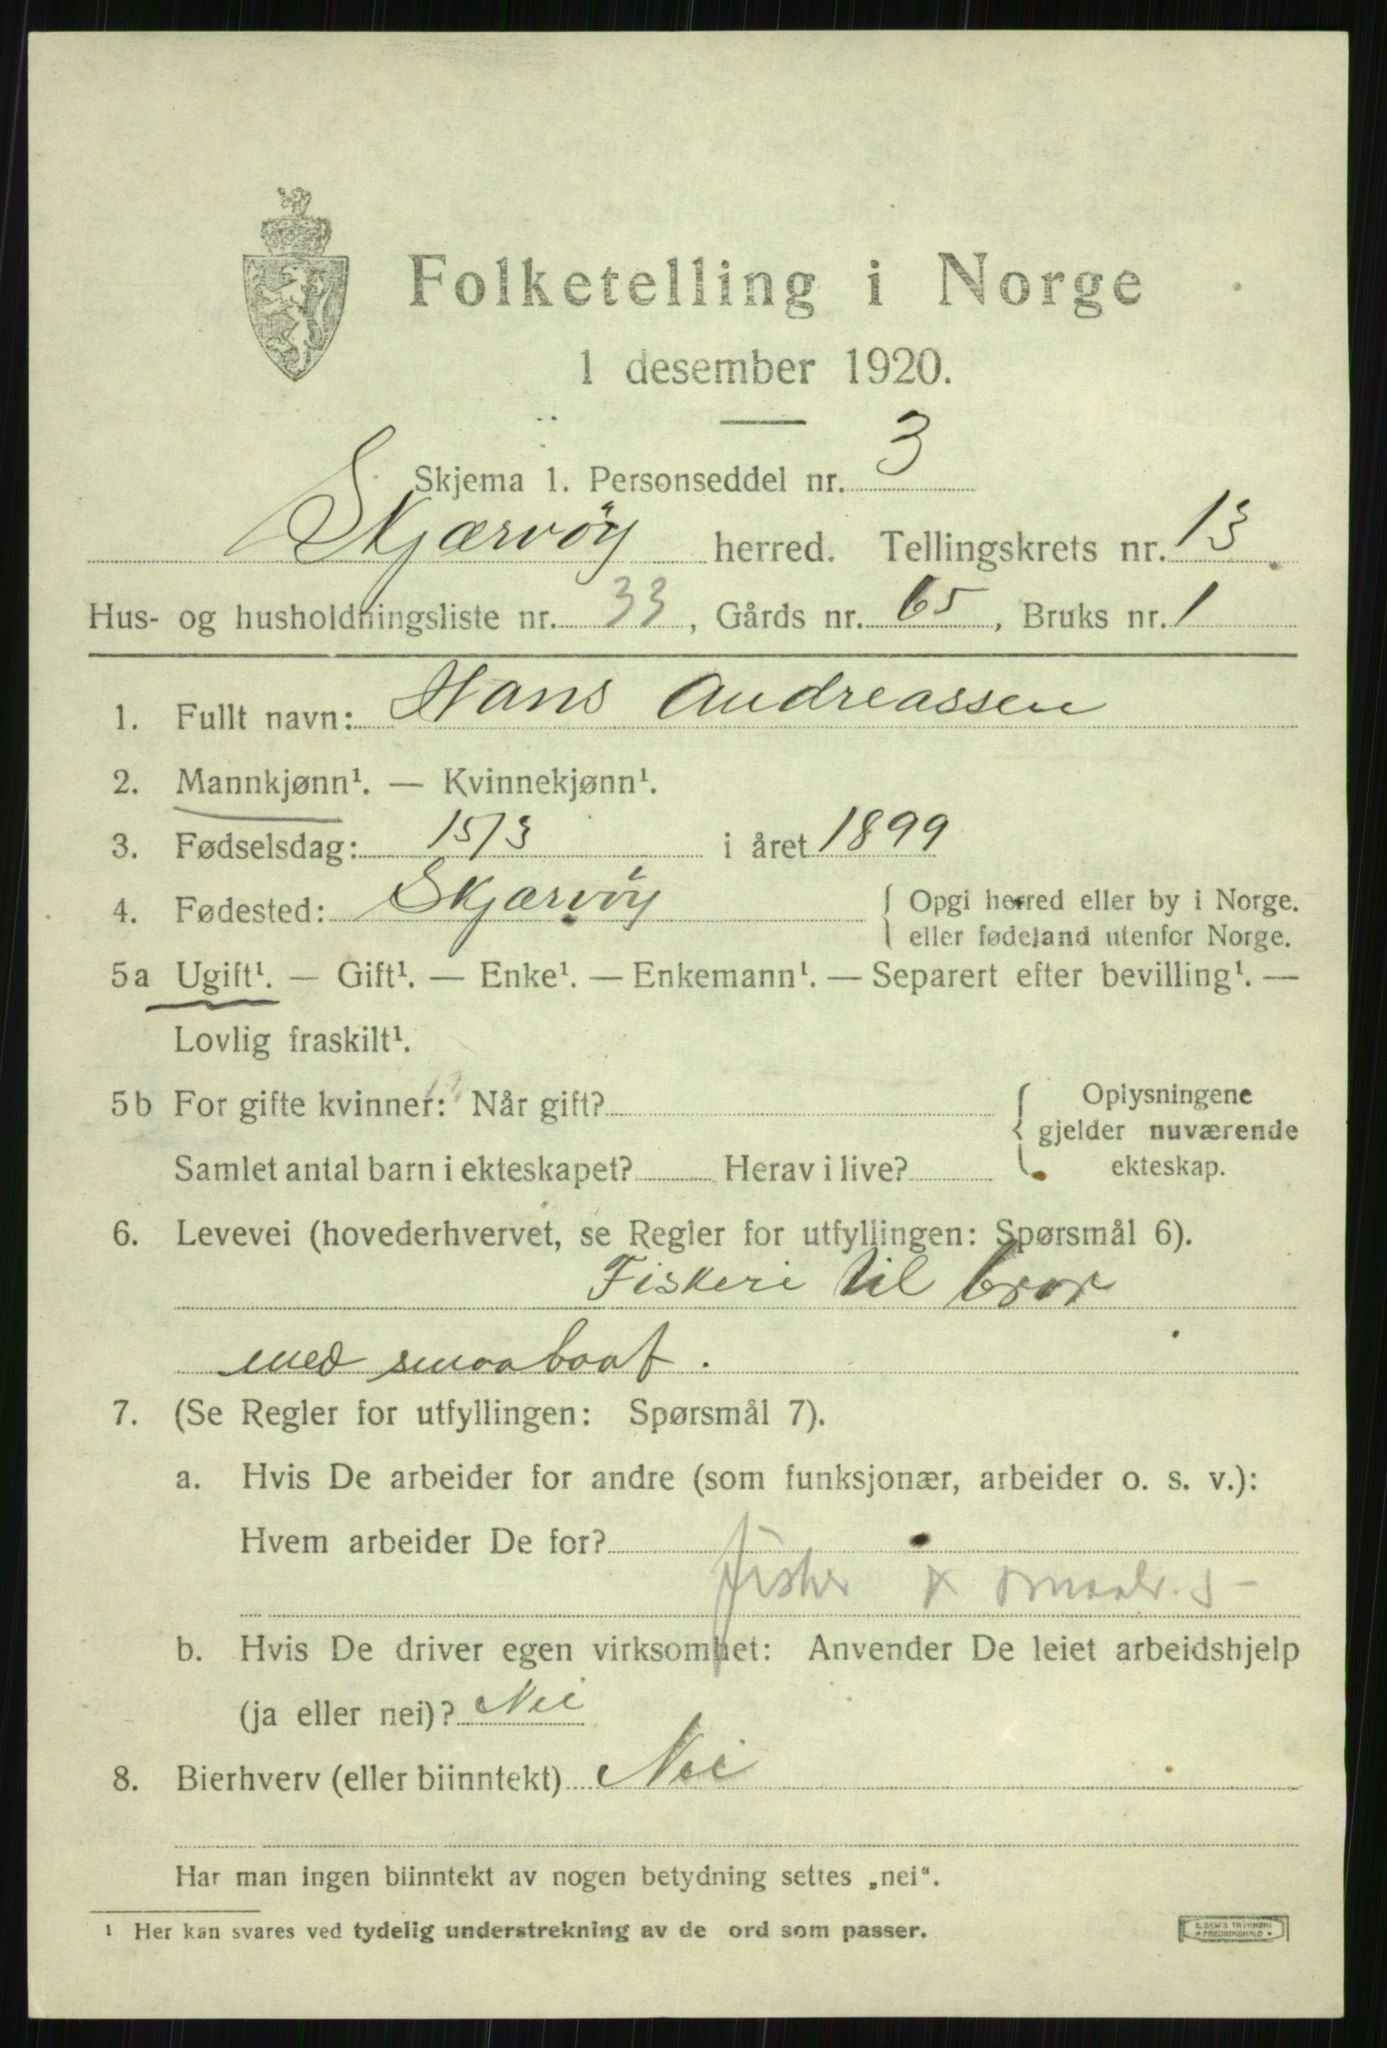 Folketelling i Norge
1 desember 1920.
Skjema 1. Personseddel nr. 3
Skjærvöy herred. Tellingskrets nr. 13
Hus- og husholdningsliste nr. 33, Gårds nr. 65, Bruks nr. 1
1. Fullt navn: Hans Andreassen
2. Mannkjønn¹. — Kvinnekjønn¹.
3. Fødselsdag: 15/3 i året 1899
4. Fødested: Skjærvöy { Opgi herred eller by i Norge.
eller fødeland utenfor Norge.
5a Ugift¹. — Gift¹. — Enke¹. — Enkemann¹. — Separert efter bevilling¹. —
Lovlig fraskilt¹.
5b For gifte kvinner: Når gift? { Oplysningene
gjelder nuværende
Samlet antal barn i ekteskapet? Herav i live? ekteskap.
6. Levevei (hovederhvervet, se Regler for utfyllingen: Spørsmål 6).
Fiskeri til bror
med smaabaat.
7. (Se Regler for utfyllingen: Spørsmål 7).
a. Hvis De arbeider for andre (som funksjonær, arbeider o. s. v.):
Hvem arbeider De for?
fisker x
b. Hvis De driver egen virksomhet: Anvender De leiet arbeidshjelp
(ja eller nei)? Nei
8. Bierhverv (eller biinntekt) Nei
Har man ingen biinntekt av nogen betydning settes „nei“.
¹ Her kan svares ved tydelig understrekning av de ord som passer.